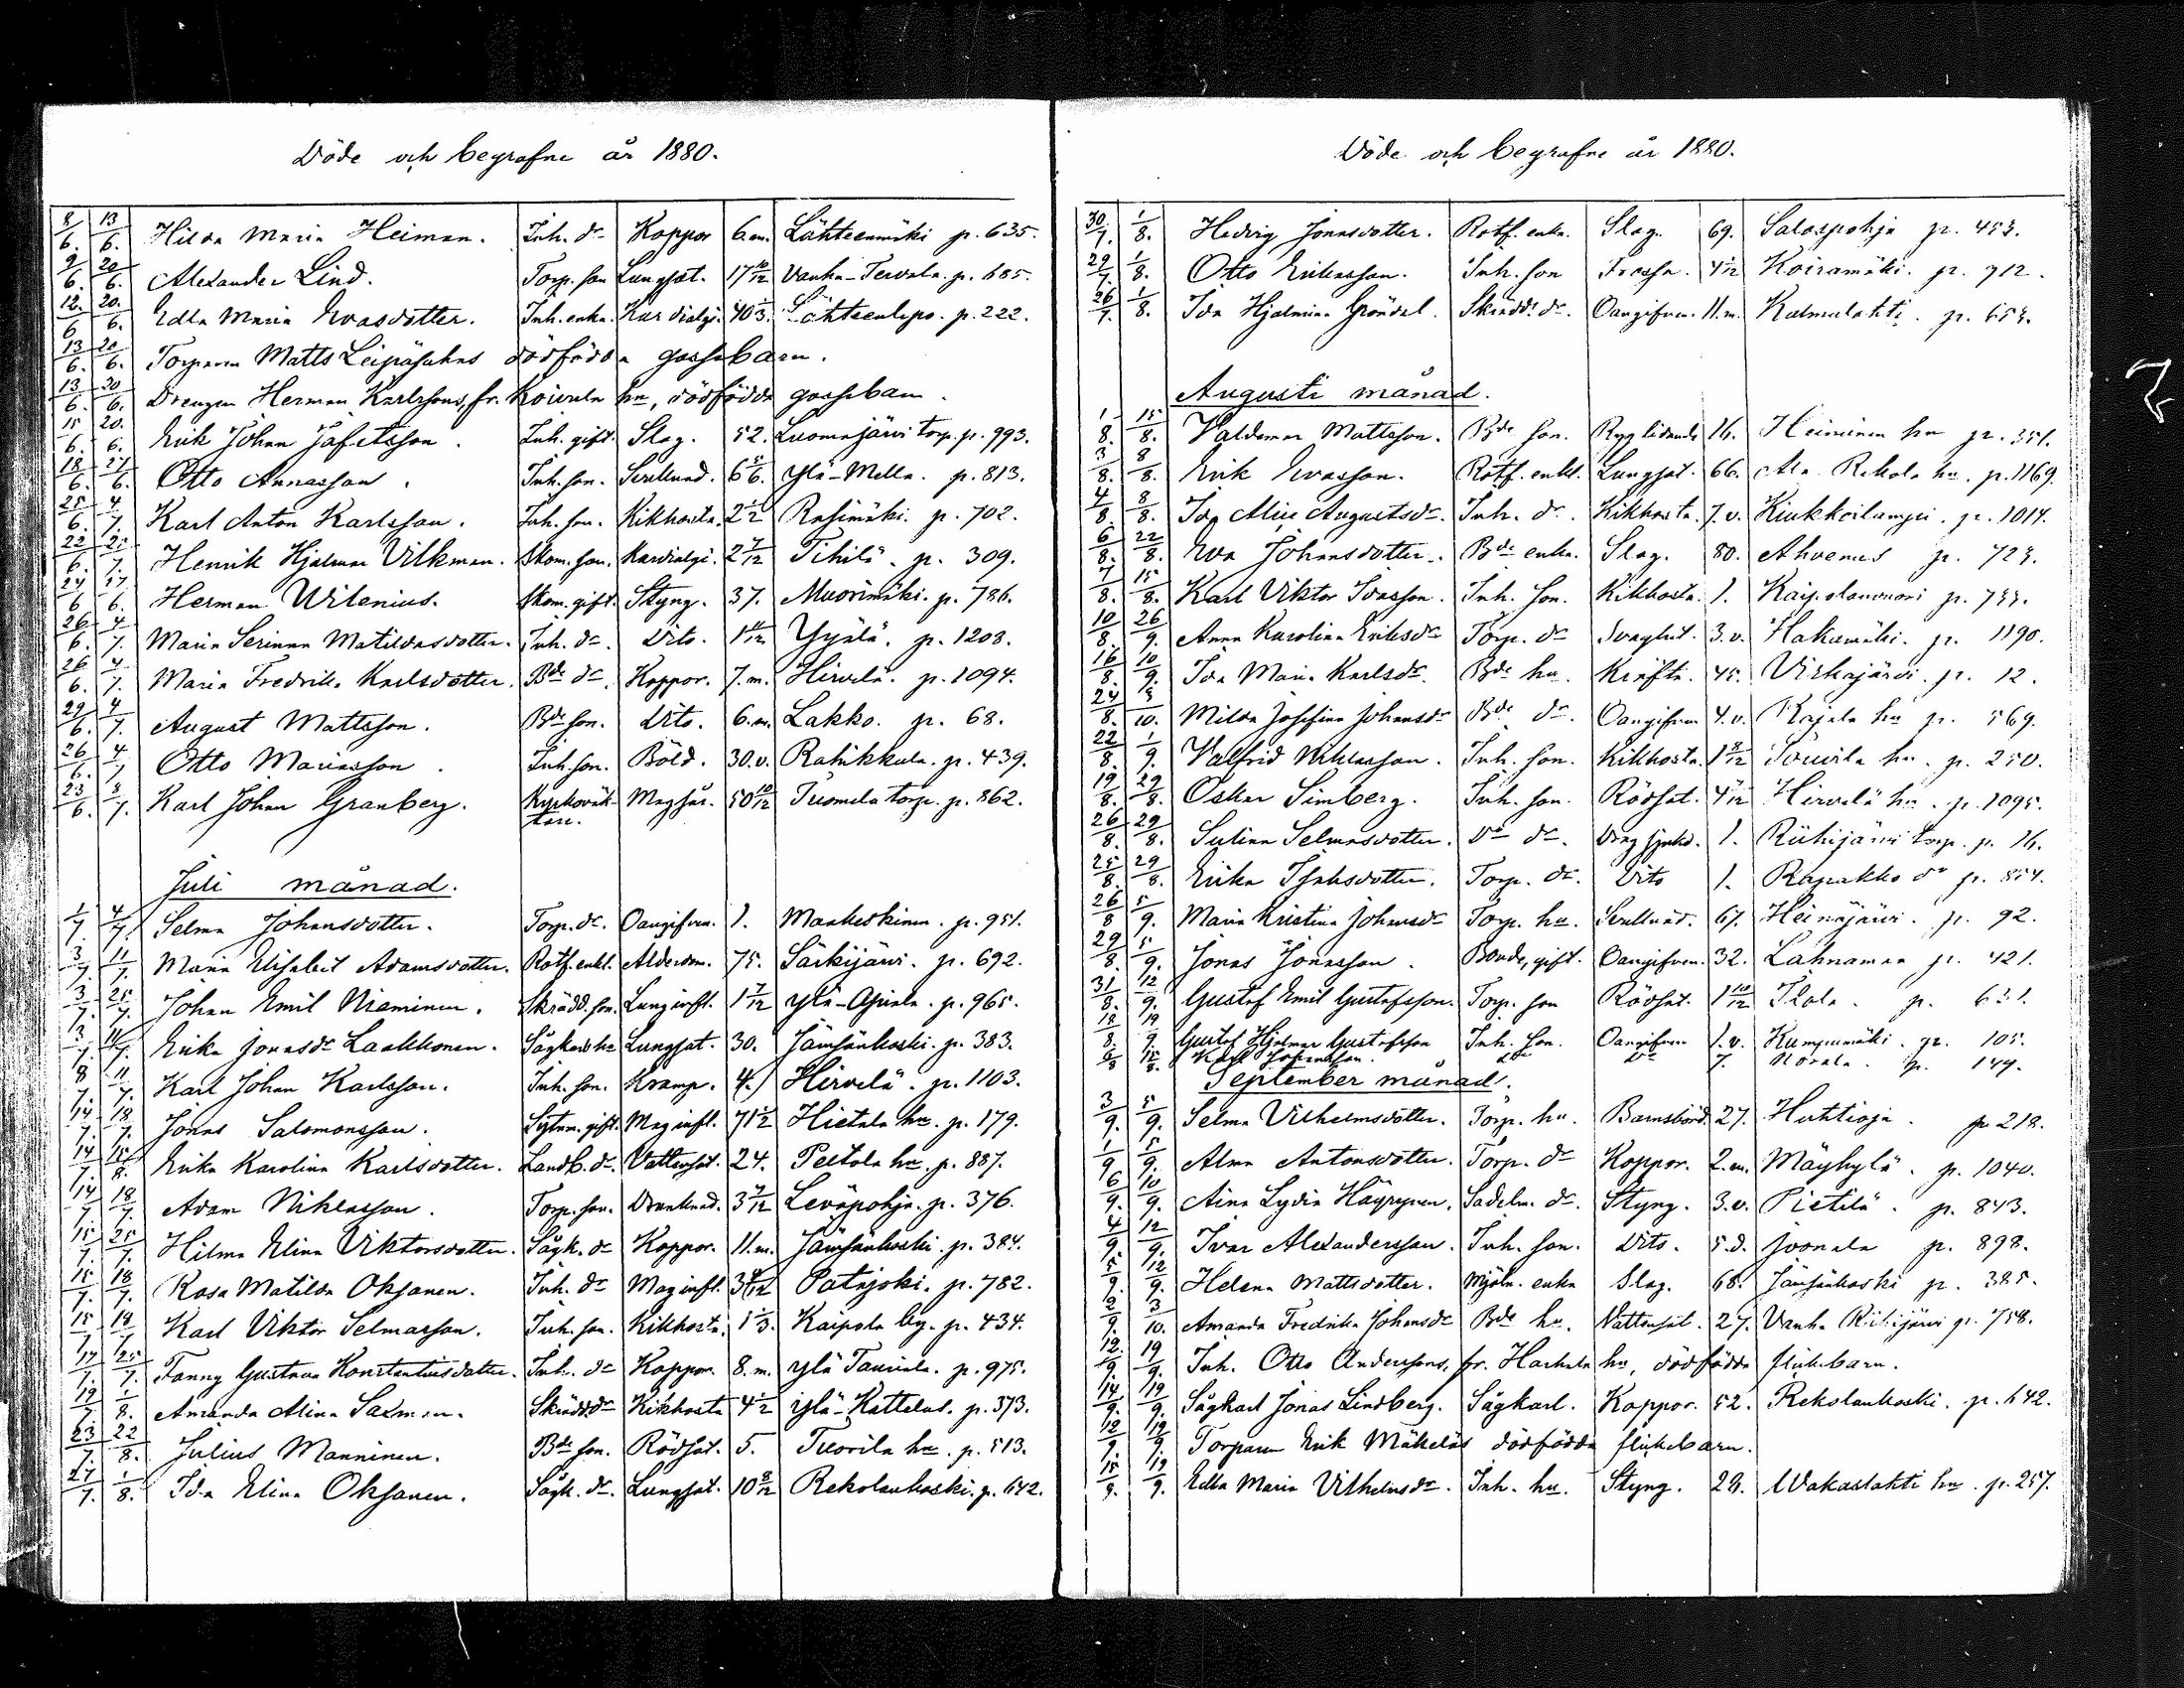 Döde och begrafne år 1880.
8/6. 13/6. Hilda Maria Heiman. Inh. dr Koppor 6.m. Lähteenmäki p. 635.
9/6. 20/6. Alexander Lind. Torp. son Lungsot. 17 10/12 Vanha-Tervala. p. 685.
12./6 20./6. Edla Maria Evasdotter. Inh. enka. Kardialgi. 40 1/3. Lähteenlepo. p. 222.
13/6. 20/6. Torparen Matts Leipäsahas dödfödda gossebarn.
13/6. 20/6. Drengen Herman Karlssons, fr. Koivula hn, dödfödda gossebarn.
15/6. 20./6. Erik Johan Jafetsson. Inh. gift. Slag. 52. Luomajärvi torp. p. 993.
18/6. 27/6. Otto Annasson. Inh. son. Scrllund. 6 5/6. Ylä-Mella. p. 813.
25/6. 4/7. Karl Anton Karlsson. Inh. son. Kikhosta. 2 1/2 Rasimäki. p. 702.
22/6. 25/7. Henrik Hjalmar Vilkman. Skom. son. Kardialgi. 2 7/12 Pihilä. p. 309.
24/6 27/6. Herman Wilenius. Skom. gift. Styng. 37. Muorimäki. p. 786.
26/6. 4/7. Maria Serinna Matildasdotter. Inh. dr Dito. 1 11/12 Yijälä. p. 1208.
26/6. 4/7. Maria Fredrika Karlsdotter. Bde dr. Koppor. 7.m. Hirvelä. p. 1094.
29/6. 4/7. August Mattsson. Bde son. Dito. 6.m. Lakko. p. 68.
26/6. 4/7 Otto Mariasson. Inh. son. Böld. 30.v. Rahikkala. p. 439.
23/6. 8/7. Karl Johan Granberg. Kyrkoväk- Magsår. 50 10/12 Tuomela torp. p. 862.
tare.
Juli månad.
1/7. 4/7. Selma Johansdotter. Torp. dr. Oangifven. 1. Mankeskinen. p. 951.
3/7. 11/7. Maria Elisabet Adamsdotter. Rotf. enkl. Alderdom. 75. Särkijärvi. p. 692.
3/7. 25/7. Johan Emil Nieminen. Skrädd. son. Lunginfl. 1 7/12 Ylä-Ajiala. p. 965.
3/7. 11/7. Erika Jonasdr Laakkonen. Sågkarls hu Lungsot. 30. Jämsänkoski. p. 383.
8/7. 11/7. Karl Johan Karlsson. Inh. son. Kramp. 4. Hirvelä. p. 1103.
14/7. 18/7. Jonas Salomonsson. Sytnm. gift. Mag infl. 71 1/2 Hietala hn. p. 179.
14/7. 15/8. Erika Karolina Karlsdotter. Landb. dr. Vattensot. 24. Peitola hn. p. 887.
14/7 18/7. Adam Niklasson. Torp. son. Drunknad. 3 7/12 Leväpohja. p. 376.
15/7. 25/7. Hilma Elina Viktorsdotter. Sågk. dr Koppor. 11.m. Jämsänkoski. p. 384.
15/7. 18/7. Rosa Matilda Oksanen. Inh. dr Mag infl. Patajoki. p. 782.
15/7 18/7 Karl Viktor Selmasson. Inh. son. Kikhosta. 1 1/3. Kaipola by. p. 434.
17/7. 25/7. Fanny Gustava Konstantinsdotter. Inh. dr Koppor. 8.m. Ylä Tauriala. p. 975.
19/7 1/8. Amanda Alina Saxman. Skrädd.dr Kikhosta 4 1/2 Ylä-Kattelus. p. 373.
23/7. 22/8. Julius Manninen. Bde son. Rödsot. 5. Tuorila hn. p. 513.
27/7. 1/8. Ida Elina Oksanen. Sågk. dr. Lungsot. 10 8/12 Rekolankoski. p. 642.
Döde och begrafne år 1880.
30/7. 1/8. Hedvig Jonasdotter. Rotf. enka. Slag. 69. Salospohja p. 453.
29/7. 1/8. Otto Eriksson. Inh. son Frossa. 4 1/12 Koiramäki. p. 712.
26/7. 1/8. Ida Hjalmina Gröndal. Skrädd. dr. Oangifven. 11.m. Kalmulahti. p. 653.
Augusti månad.
1/8. 15/8. Valdemar Mattsson. Bde son. Rygglidande 16. Heininen hn p. 351.
3/8. 8/8. Erik Evasson. Rotf. enkl. Lungsot. 66. Ala-Rekola hn. p. 1169.
4/8. 8/8. Ida Alice Augustsdr. Inh. dr. Kikhosta. 7.v. Kiukkoilampi. p. 1014.
6/8. 22/8. Eva Johansdotter. Bde enka. Slag. 80. Ahvenus p. 723.
7/8. 15/8. Karl Viktor Ivasson. Inh. son. Kikhosta. 1. Kaipolanvuori p. 733.
10/8. 26/9. Anna Karolina Eriksdr Torp. dr Svaghet. 3.v. Hakamäki. p. 1190.
16/8. 10/9. Ida Maria Karlsdr. Bde hu. Kräfta. 45. Virkajärvi. p. 12.
24/8. 3/10. Milda Josefina Johansdr Bde dr. Oangifven 4.v. Kajala hn p. 569.
22/8. 1/9. Valfrid Niklasson. Inh. son. Kikhosta. 1 8/12 Souvila hn. p. 250.
19/8. 29/8. Oskar Simberg. Inh. son. Rödsot. Hirvelä hn. p. 1095.
26/8. 29/8. Sulina Selmasdotter. Dr dr. Drag sjukd. 1. Riihijärvi torp. p. 16.
25/8. 29/8. Erika Isaksdotter. Torp. dr. Dito 1. Rapakko dr p. 854.
26/8 5/9. Maria Kristina Johansdr Torp. hu. 67. Heinäjärvi. p. 92.
29/8. 5/9. Jonas Jonasson. Bonde, gift. Oangifven. 32. Lahnamaa p. 421.
31/8. 12/9. Gustaf Emil Gustafsson. Torp. son Rödsot. 1 10/12 p. 631.
18/8. 19/9. Gustaf Hjalmar Gustafsson Inh. son. Oangifven 1.v. Kumpumäki. p. 105.
6/8 15/8. Karl Johansson. dr dr 7. Novala. p. 149.
September månad.
3/9. 5/9. Selma Vilhelmsdotter. Torp. hu. Barnsbörd. 27. Huhtioja. p. 218.
1/9. 5/9. Alma Antonsdotter. Torp. dr Koppor. 2.m. Mäyhylä. p. 1040.
6/9. 10/9. Aina Lydia Häyrynen. Sadelm. dr. Styng. 3.v. Pietilä. p. 843.
4/9 12/9. Ivar Alexandersson. Inh. son. Dito. 5.d. Joonala p. 898.
5/9. 12/9. Helena Mattsdotter. Mjöln. enka Slag. 68. Jämsänkoski p. 385.
2/9. 3/10. Amanda Fredrika Johansdr Bde hu. Vattensot. 27. Vanha Riihijärvi p. 758.
12/9. 19/9. Inh. Otto Anderssons, fr. Harkala hn, dödfödda flickebarn.
14/9. 19/9. Sågkarl Jonas Lindberg. Sågkarl. Koppor. 52. Rekolankoski. p. 642.
12/9. 19/9. Torparen Erik Mäkeläs dödfödda flickebarn.
15/9. 19/9. Edla Maria Vilhelmsdr. Inh. hu. Styng. 28. Wakaslahti hn. p. 257.